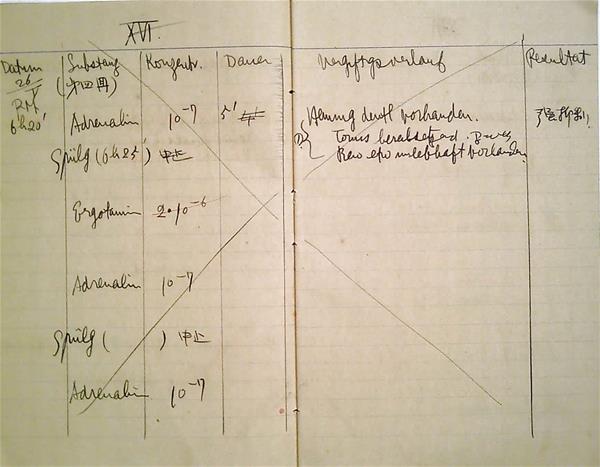 XVI.
Datum Substanz Konzentr. Dauer Vergiftgsverlauf Resultat
26/V (第四回)
6h20' Adrenalin 10⁻⁷ 5' Hemung deutl vorhanden.
Tonus herabsetzend.
vorhanden
Spülg (6h25') 中止
Ergotamin 2·10⁻⁶
Adrenalin 10⁻⁷
Spülg ( ) 中止
Adrenalin 10⁻⁷